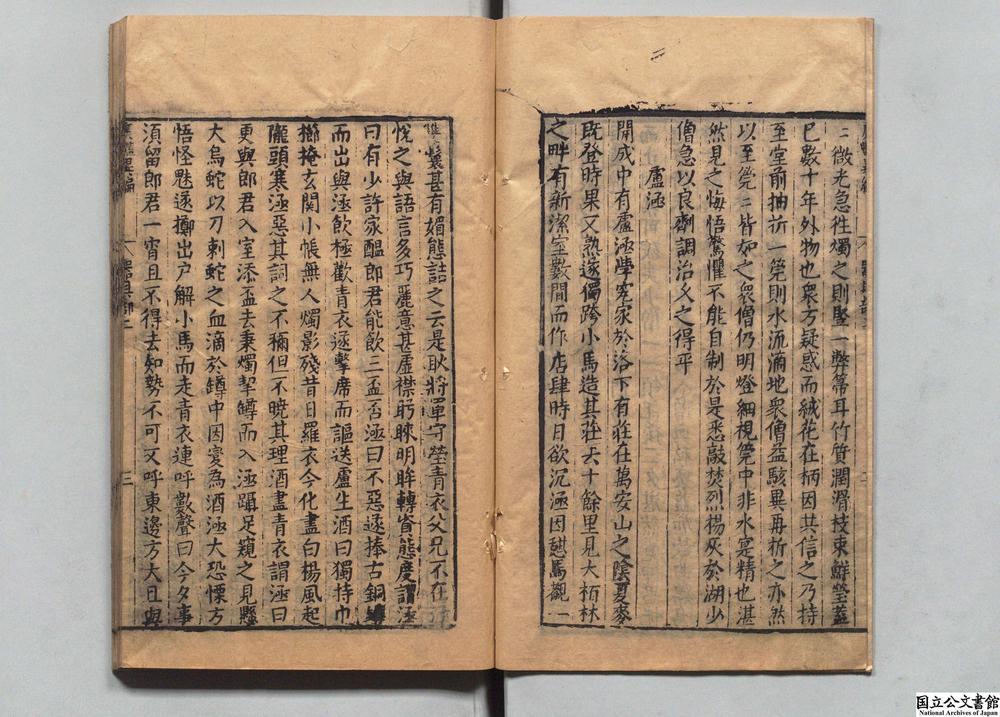 二微光急往燭之則竪一弊箒耳竹質潤滑枝束鮮瑩蓋
已數十年外物也衆方疑惑而絨花在柄因共信之乃持
至堂前抽折一筦則水流滴地衆僧益駭異再折之亦然
以至筦二皆如之衆僧仍明燈細視筦中非水寔精也湛
然見之悔悟驚懼不能自制於是悉敲焚烈楊灰於湖少
僧急以良劑調治久之得平
盧涵
開成中有盧涵學究家於洛下有莊在萬安山之陰夏麥
既登時果又熟遂獨跨小馬造其莊去十餘里見大栢林
之畔有新潔室數間而作店肆時日欲沉涵因憇馬觀一
雙鬟甚有媚態詰之云是耿將軍守塋青衣父兄不在
悅之與語言多巧麗意甚虛襟盻睞明眸轉資態度謂涵
曰有少許家醞郎君能飲三盃否涵曰不惡遂捧古銅罇
而出與涵飲極歡青衣遂擊席而謳送盧生酒曰獨持巾
櫛掩玄關小帳無人燭影殘昔日羅衣今化盡白楊風起
隴頭寒涵惡其詞之不稱但不曉其理酒盡青衣謂涵曰
更與郎君入室添盃去秉燭挈罇而入涵躡足窺之見懸
大烏蛇以刀刺蛇之血滴於罇中因變為酒涵大恐慄方
悟怪魅遂擲出戶解小馬而走青衣連呼數聲曰今夕事
須留郎君一宵且不得去知勢不可又呼東邊方大且與
三
国立公文書館
National Archives of Japan